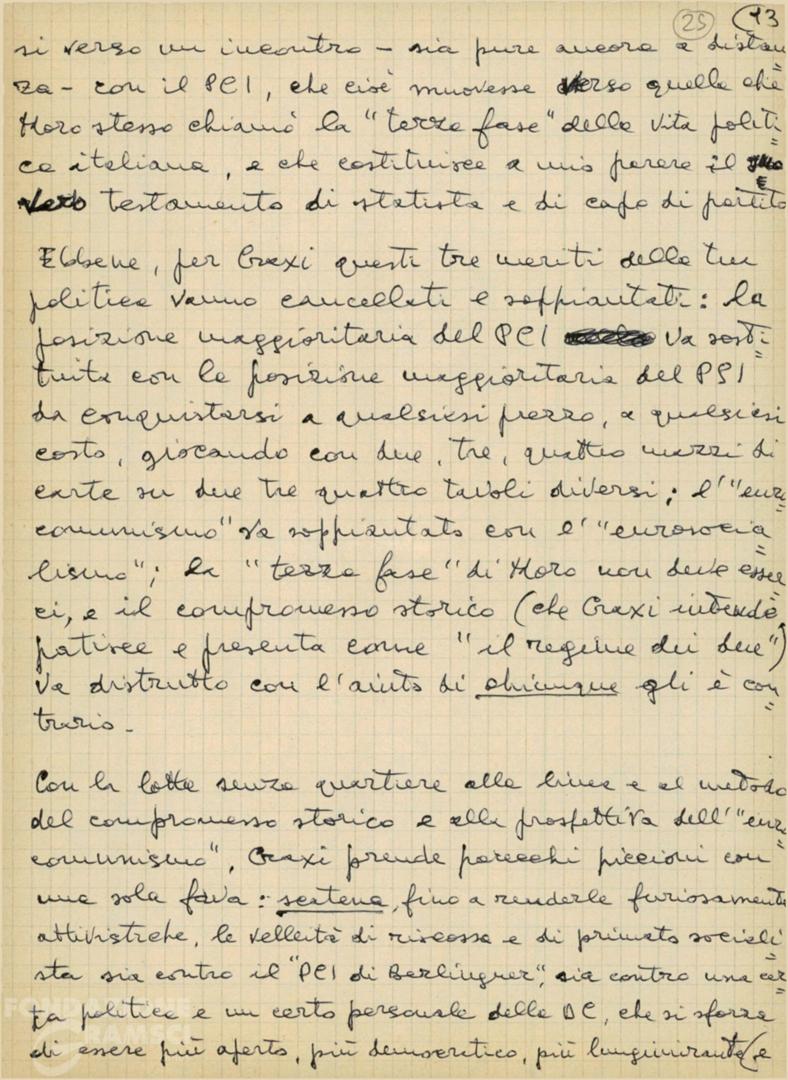 25 13
si verso un incontro - sia pure ancora a distan=
za - con il PCI, che cioè muovesse verso quella che
Moro stesso chiamò la "terza fase" della vita politi=
ca italiana, e che costituisce a mio parere il suo
vero testamento di statista e di capo di partito
Ebbene, per Craxi questi tre meriti della tua
politica vanno cancellati e soppiantati: la
posizione maggioritaria del PCI va sosti=
tuita con la posizione maggioritaria del PSI
da conquistarsi a qualsiasi prezzo, a qualsiasi
costo, giocando con due, tre, quattro mazzi di
carte su due tre quattro tavoli diversi; l'"euro=
comunismo" va soppiantato con l'"eurosocia=
lismo"; la "terza fase" di Moro non deve esser=
ci, e il compromesso storico (che Craxi intende
patisce e presenta come "il regime dei due")
va distrutto con l'aiuto di chiunque gli è con=
trario.
Con la lotta senza quartiere alla linea e al metodo
del compromesso storico e alla prospettiva dell'"euro=
comunismo", Craxi prende parecchi piccioni con
una sola fava: scatena, fino a renderle furiosamente
attivistiche, le velleità di riscossa e di primato sociali=
sta sia contro il "PCI di Berlinguer", sia contro una cer=
ta politica e un certo personale della DC, che si sforza
di essere più aperto, più democratico, più lungimirante (e
FONDAZIONE
GRAMSCI